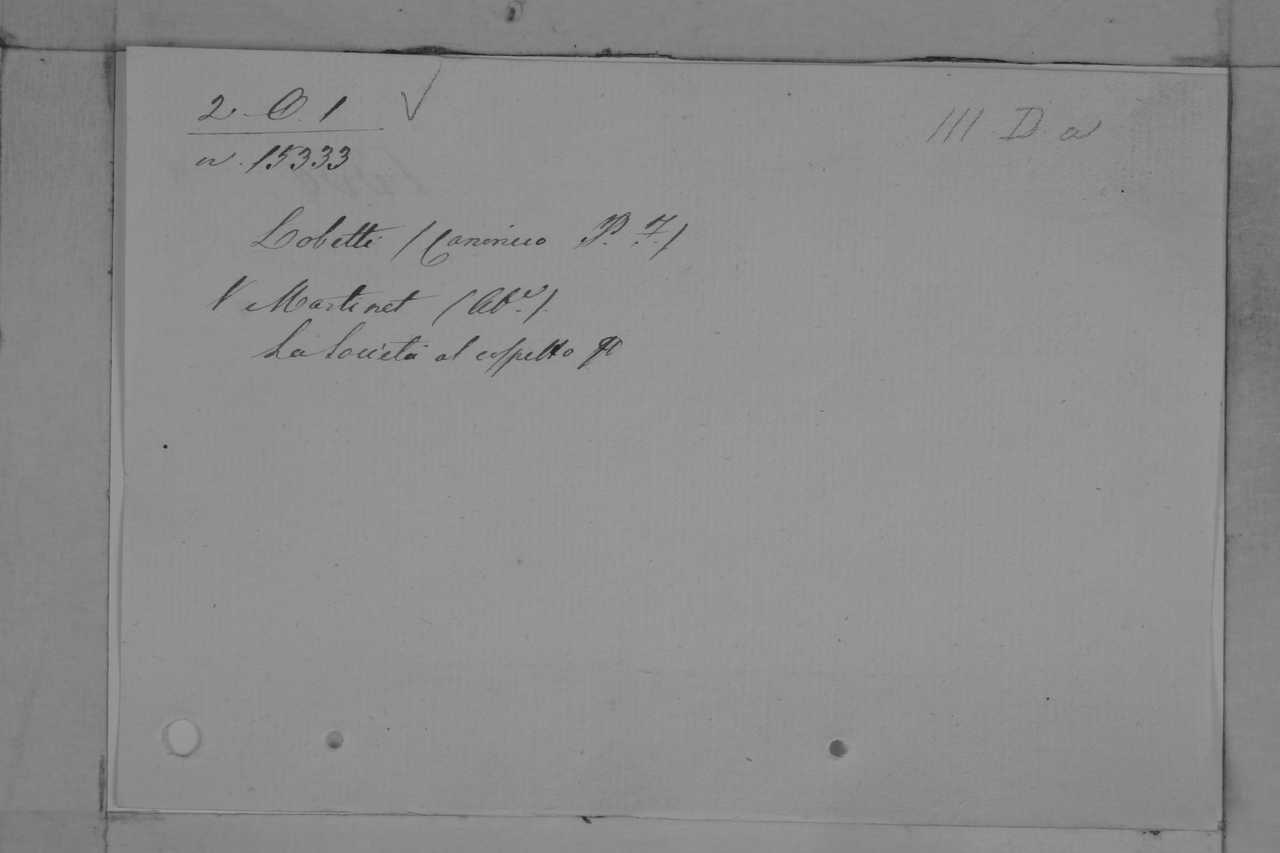 2. O. 1
III D a
n. 15333
Lobetti (Canonico P. F.)
V Martinet (Abe)
La Società al cospetto